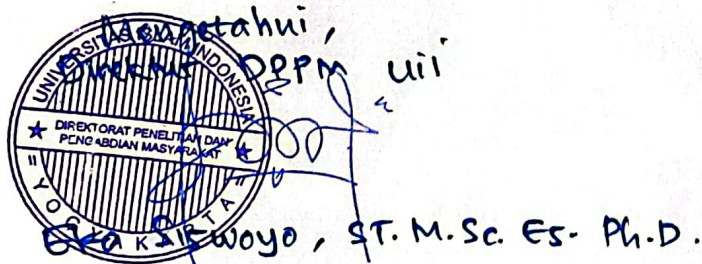 Mengetahui,
Direktur DPPM UII
UNIVERSITAS ISLAM INDONESIA
DIREKTORAT PENELITIAN DAN
PENGABDIAN MASYARAKAT
YOGYAKARTA
Eko Siswoyo, ST. M.Sc. ES. Ph.D.